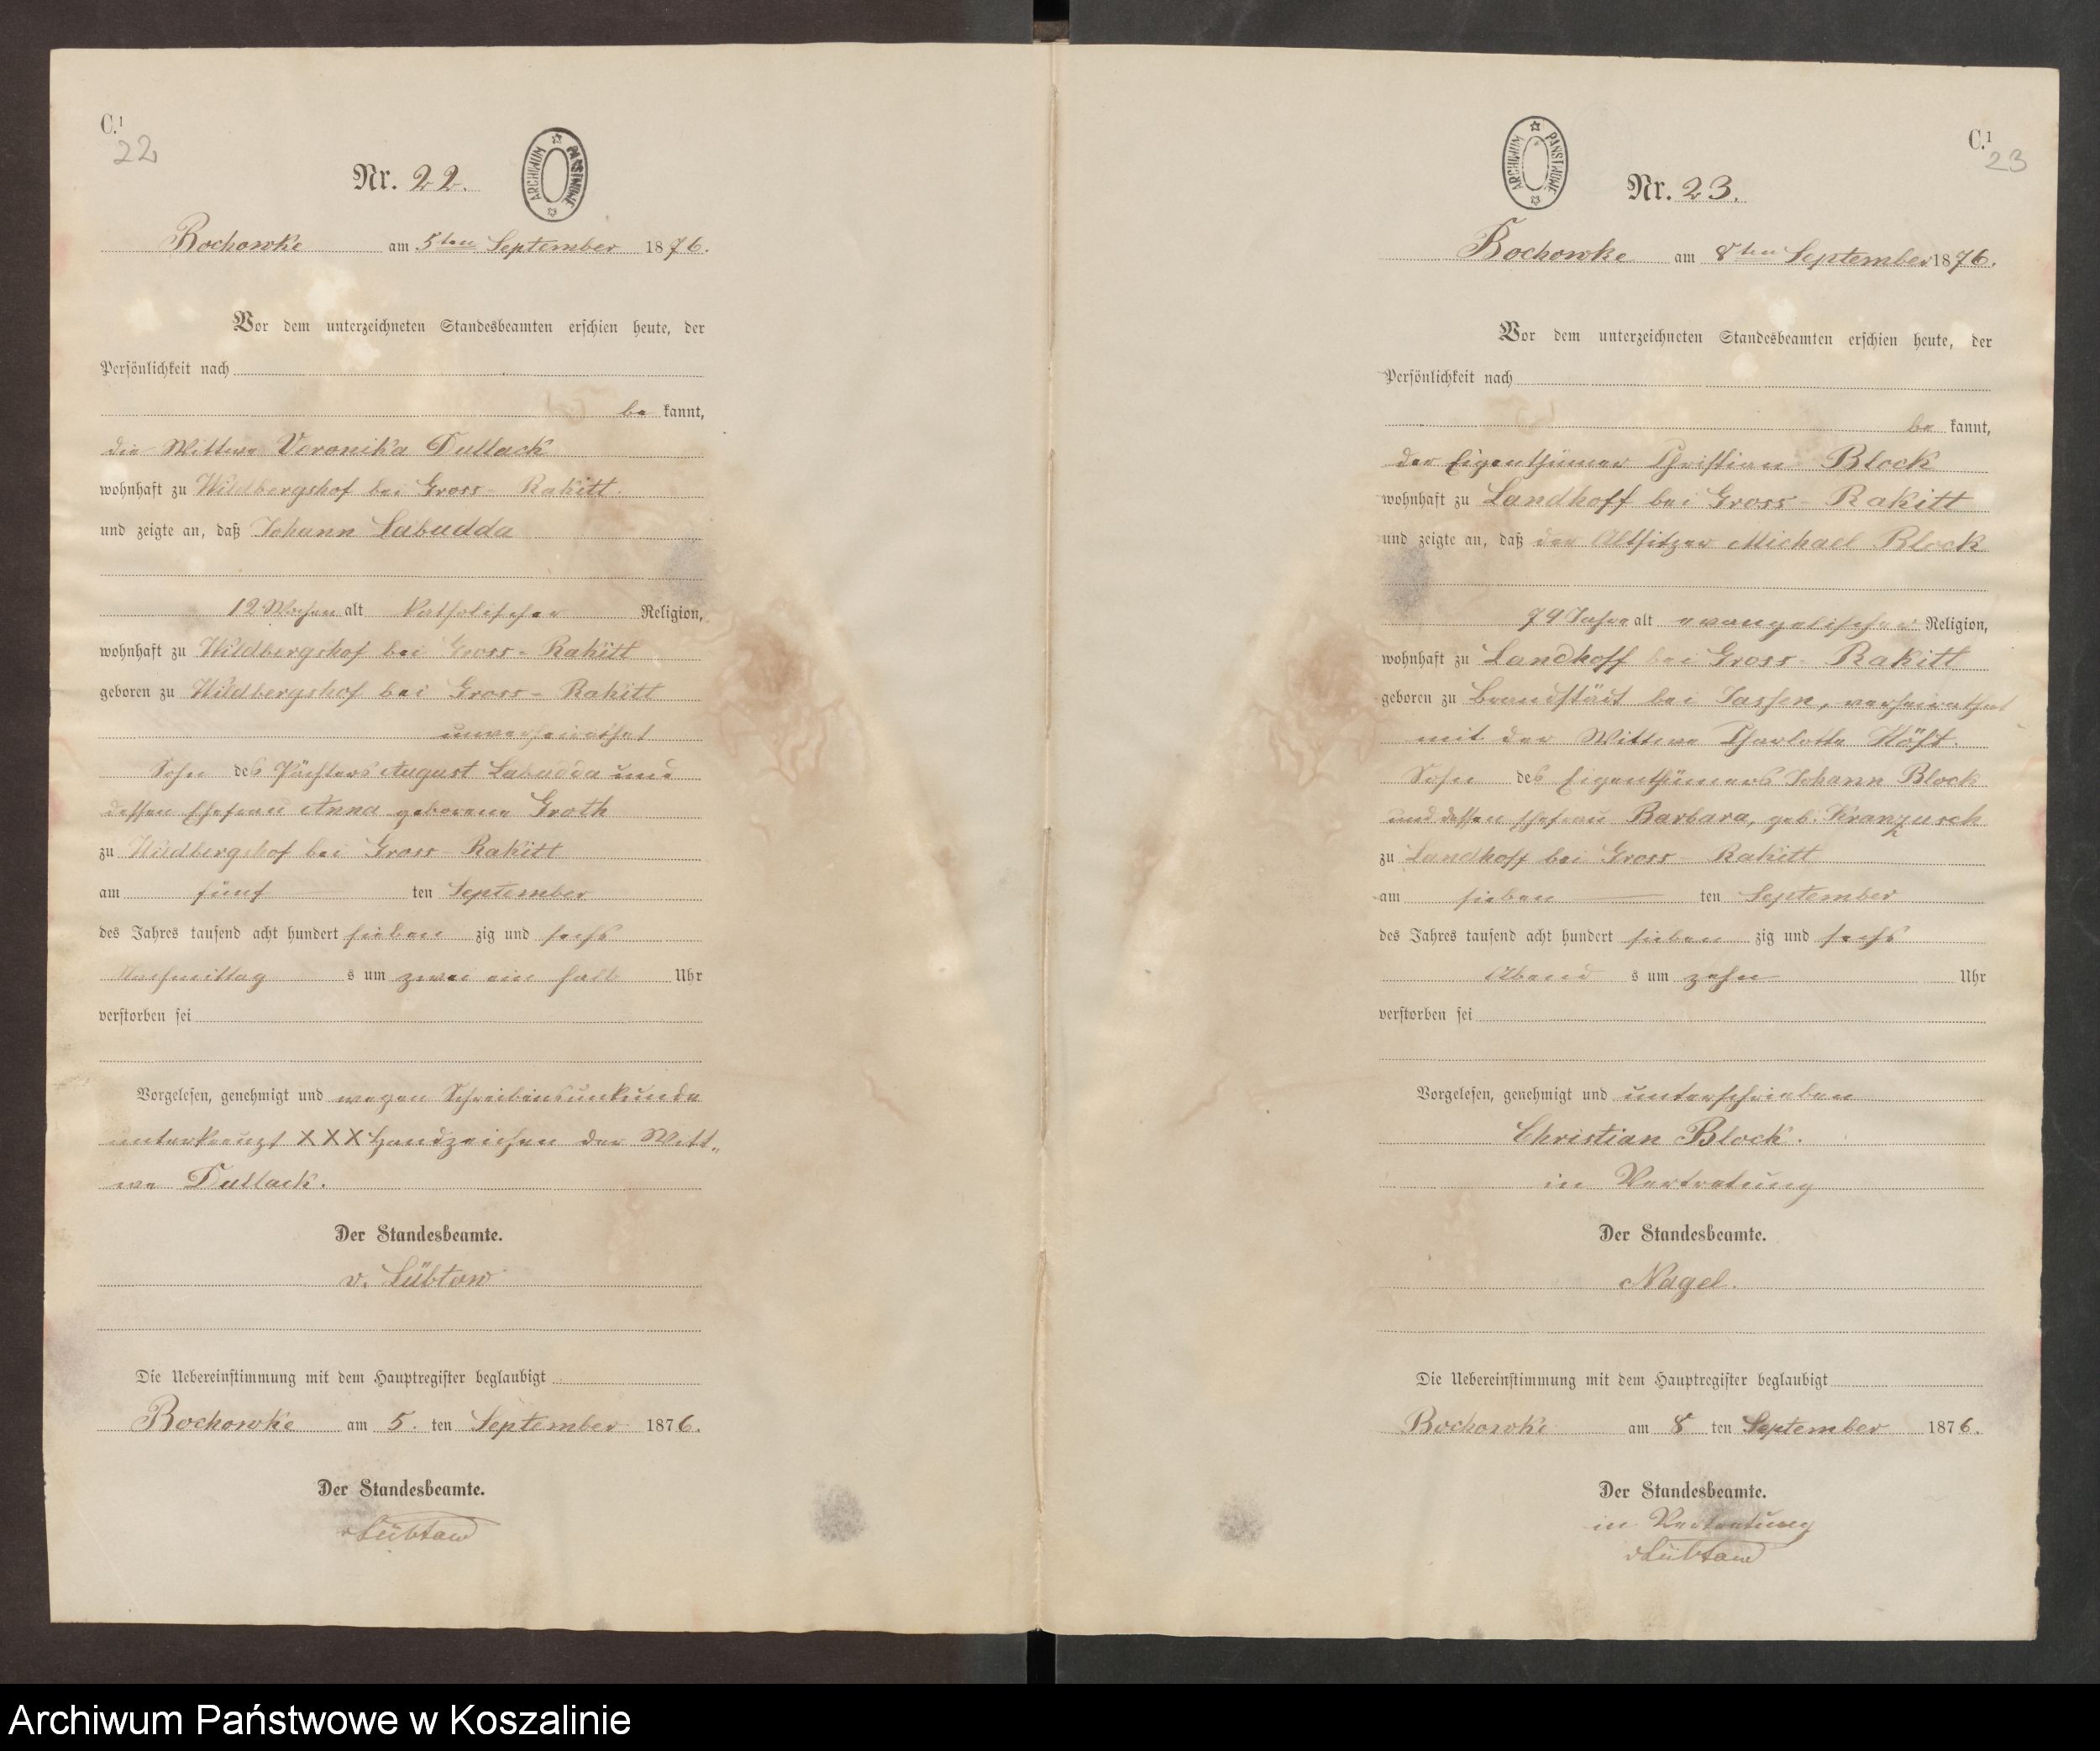 C.¹
22
Nr. 22.
ARCHIWUM PAŃSTWOWE
Bochowke am 5ten September 1876.
Vor dem unterzeichneten Standesbeamten erschien heute, der
Persönlichkeit nach
be kannt,
die Wittwe Veronika Dullack
wohnhaft zu Wildbergshof bei Gross-Rakitt.
und zeigte an, daß Johann Labudda
12 Wochen alt katholischer Religion,
wohnhaft zu Wildbergshof bei Gross-Rakitt
geboren zu Wildbergshof bei Gross-Rakitt
unverheirathet
Sohn des Pächters August Labudda und
dessen Ehefrau Anna geborene Groth
zu Wildbergshof bei Gross-Rakitt
am fünf ten September
des Jahres tausend acht hundert sieben zig und sechs
Nachmittag s um zwei ein halb Uhr
verstorben sei
Vorgelesen, genehmigt und wegen Schreibensunkunde
unterkreuzt XXX Handzeichen der Witt„
we Dullack.
Der Standesbeamte.
v. Lübtow
Die Uebereinstimmung mit dem Hauptregister beglaubigt
Bochowke am 5. ten September 1876.
Der Standesbeamte.
vLübtow
C.¹
23
ARCHIWUM PAŃSTWOWE
Nr. 23.
Bochowke am 8ten September 1876.
Vor dem unterzeichneten Standesbeamten erschien heute, der
Persönlichkeit nach
be kannt,
der Eigenthümer Christian Block
wohnhaft zu Landhoff bei Gross-Rakitt
und zeigte an, daß der Altsitzer Michael Block
74 Jahre alt evangelischer Religion,
wohnhaft zu Landhoff bei Gross-Rakitt
geboren zu Brandstädt bei Jassen, verheirathet
mit der Wittwe Charlotte
Sohn des Eigenthümers Johann Block
und dessen Ehefrau Barbara, geb. Kranzusch
zu Landhoff bei Gross-Rakitt
am sieben ten September
des Jahres tausend acht hundert sieben zig und sechs
Abend s um zehn Uhr
verstorben sei
Vorgelesen, genehmigt und unterschrieben
Christian Block.
in Vertretung
Der Standesbeamte.
Nagel.
Die Uebereinstimmung mit dem Hauptregister beglaubigt
Bochowke am 8 ten September 1876.
Der Standesbeamte.
in Vertretung
vLübtow
Archiwum Państwowe w Koszalinie